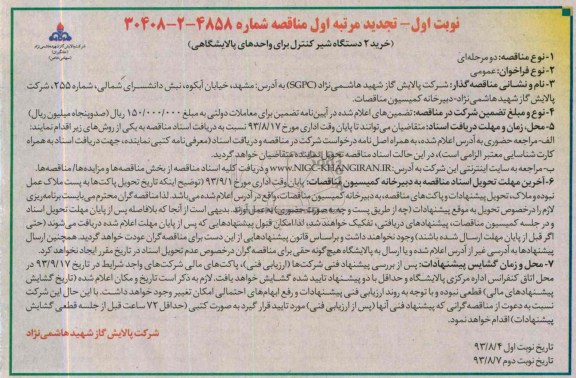 نوبت اول- تجدید مرتبه اول مناقصه شماره ۴۸۵۸-۲-۳۰۴۰۸
(خرید ۲ دستگاه شیر کنترل برای واحدهای پالایشگاهی)
شرکت پالایش گاز شهید هاشمی‌نژاد
۱-نوع مناقصه: دو مرحله‌ای
۲-نوع فراخوان: عمومی
۳-نام و نشانی مناقصه گذار: شرکت پالایش گاز شهید هاشمی‌نژاد (SGPC) به آدرس: مشهد، خیابان آبکوه، نبش دانشسرای شمالی، شماره ۲۵۵، شرکت
پالایش گاز شهید هاشمی‌نژاد-دبیرخانه کمیسیون مناقصات.
۴-نوع و مبلغ تضمین شرکت در مناقصه: تضمین‌های اعلام شده در آیین‌نامه تضمین برای معاملات دولتی به مبلغ ۱۵۰/۰۰۰/۰۰۰ ریال (صدوپنجاه میلیون ریال)
۵-محل، زمان و مهلت دریافت اسناد: متقاضیان می‌توانند تا پایان وقت اداری مورخ ۹۳/۸/۱۷ نسبت به دریافت اسناد مناقصه به یکی از روش‌های زیر اقدام نمایند:
الف-مراجعه حضوری به آدرس اعلام شده، به همراه اصل نامه درخواست شرکت در مناقصه و دریافت اسناد (معرفی‌نامه کتبی نماینده، جهت دریافت اسناد به همراه
کارت شناسایی معتبر الزامی است)، در این حالت اسناد مناقصه تحویل نماینده متقاضیان خواهد گردید.
ب-مراجعه به سایت اینترنتی این شرکت به آدرس: WWW.NIGC-KHANGIRAN.IR و دریافت کلیه اسناد مناقصه از بخش مناقصه‌ها و مزایده‌ها/مناقصه‌ها.
۶-آخرین مهلت تحویل اسناد مناقصه به دبیرخانه کمیسیون مناقصات: پایان وقت اداری مورخ ۹۳/۹/۱ (توضیح اینکه تاریخ تحویل پاکت‌ها به پست ملاک عمل
نبوده و ملاک، تحویل پیشنهادات و پاکت‌های مناقصه، به دبیرخانه کمیسیون مناقصات، واقع در آدرس اعلام شده می‌باشد. لذا مناقصه‌گران محترم می‌بایست برنامه‌ریزی
لازم را درخصوص تحویل به موقع پیشنهادات (چه از طریق پست و چه به صورت حضوری) به عمل آورند. بدیهی است از آنجا که بلافاصله پس از پایان مهلت تحویل اسناد
و در جلسه کمیسیون مناقصات، پیشنهادهای دریافتی، تفکیک خواهند شد، لذا امکان قبول پیشنهادهایی که پس از پایان مهلت اعلام شده دریافت می‌شوند (حتی
اگر قبل از پایان مهلت ارسال شده باشند) وجود نخواهند داشت و براساس قانون پیشنهادهایی از این دست برای مناقصه‌گران عودت خواهد گردید. همچنین ارسال
پیشنهادها به آدرسی غیر از آدرس اعلام شده و یا ارسال به پالایشگاه هیچ‌گونه حقی برای مناقصه‌گران درخصوص عدم تحویل اسناد در تاریخ مقرر ایجاد نخواهد کرد.
۷-محل و زمان گشایش پیشنهادات: پس از بررسی پیشنهاد فنی شرکت‌ها (ارزیابی فنی)، پاکت‌های مالی شرکت‌های واجد شرایط در تاریخ ۹۳/۹/۱۷ در
محل اتاق کنفرانس اداره مرکزی پالایشگاه و حداقل با دو پیشنهاد تایید شده گشایش خواهد یافت. لازم به ذکر است تاریخ و مکان اعلام شده (تاریخ گشایش
پیشنهادهای مالی) قطعی نبوده و با توجه به روند ارزیابی فنی پیشنهادات و رفع ابهام‌های احتمالی امکان تغییر وجود خواهد داشت. با این حال این شرکت
نسبت به دعوت از مناقصه‌گرانی که پیشنهاد فنی آنها (پس از ارزیابی فنی) مورد تایید قرار گیرد به صورت کتبی (حداقل ۷۲ ساعت قبل از جلسه قطعی گشایش
پیشنهادات) اقدام خواهد نمود.
تاریخ نوبت اول ۹۳/۸/۴
تاریخ نوبت دوم ۹۳/۸/۷
شرکت پالایش گاز شهید هاشمی‌نژاد